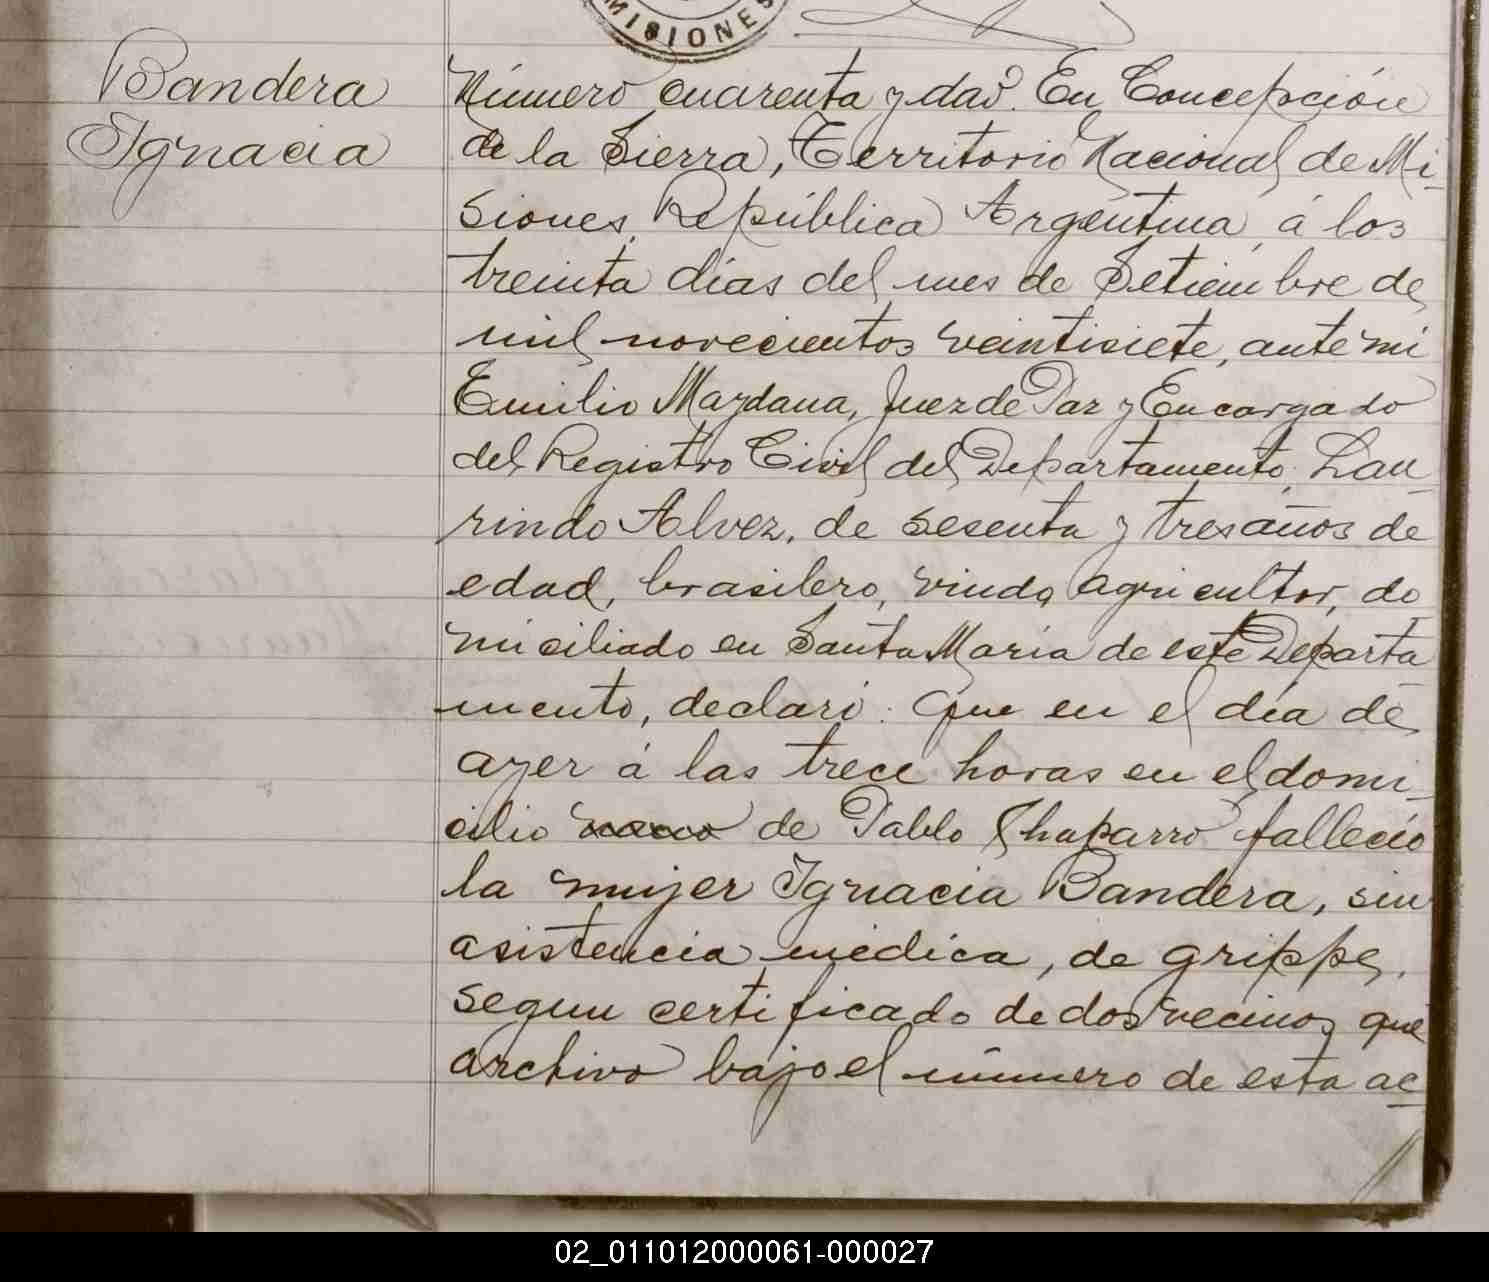 MISIONES
Bandera
Ignacia
Número cuarenta y dos. En Concepción
de la Sierra, Territorio Nacional de Mi-
siones, República Argentina, á los
treinta días del mes de Setiembre de
mil novecientos veintisiete, ante mi
Emilio Maydana, Juez de Paz y Encargado
del Registro Civil del Departamento, Lau-
rindo Alvez, de sesenta y tres años de
edad, brasilero, viudo, agricultor, do
miciliado en Santa María de este Departa
mento, declaró: Que en el día de
ayer á las trece horas en el domi-
cilio de Pablo Chaparro falleció
la mujer Ignacia Bandera, sin
asistencia médica, de grippe,
segun certificado de dos vecinos que
archivo bajo el número de esta ac
02_011012000061-000027